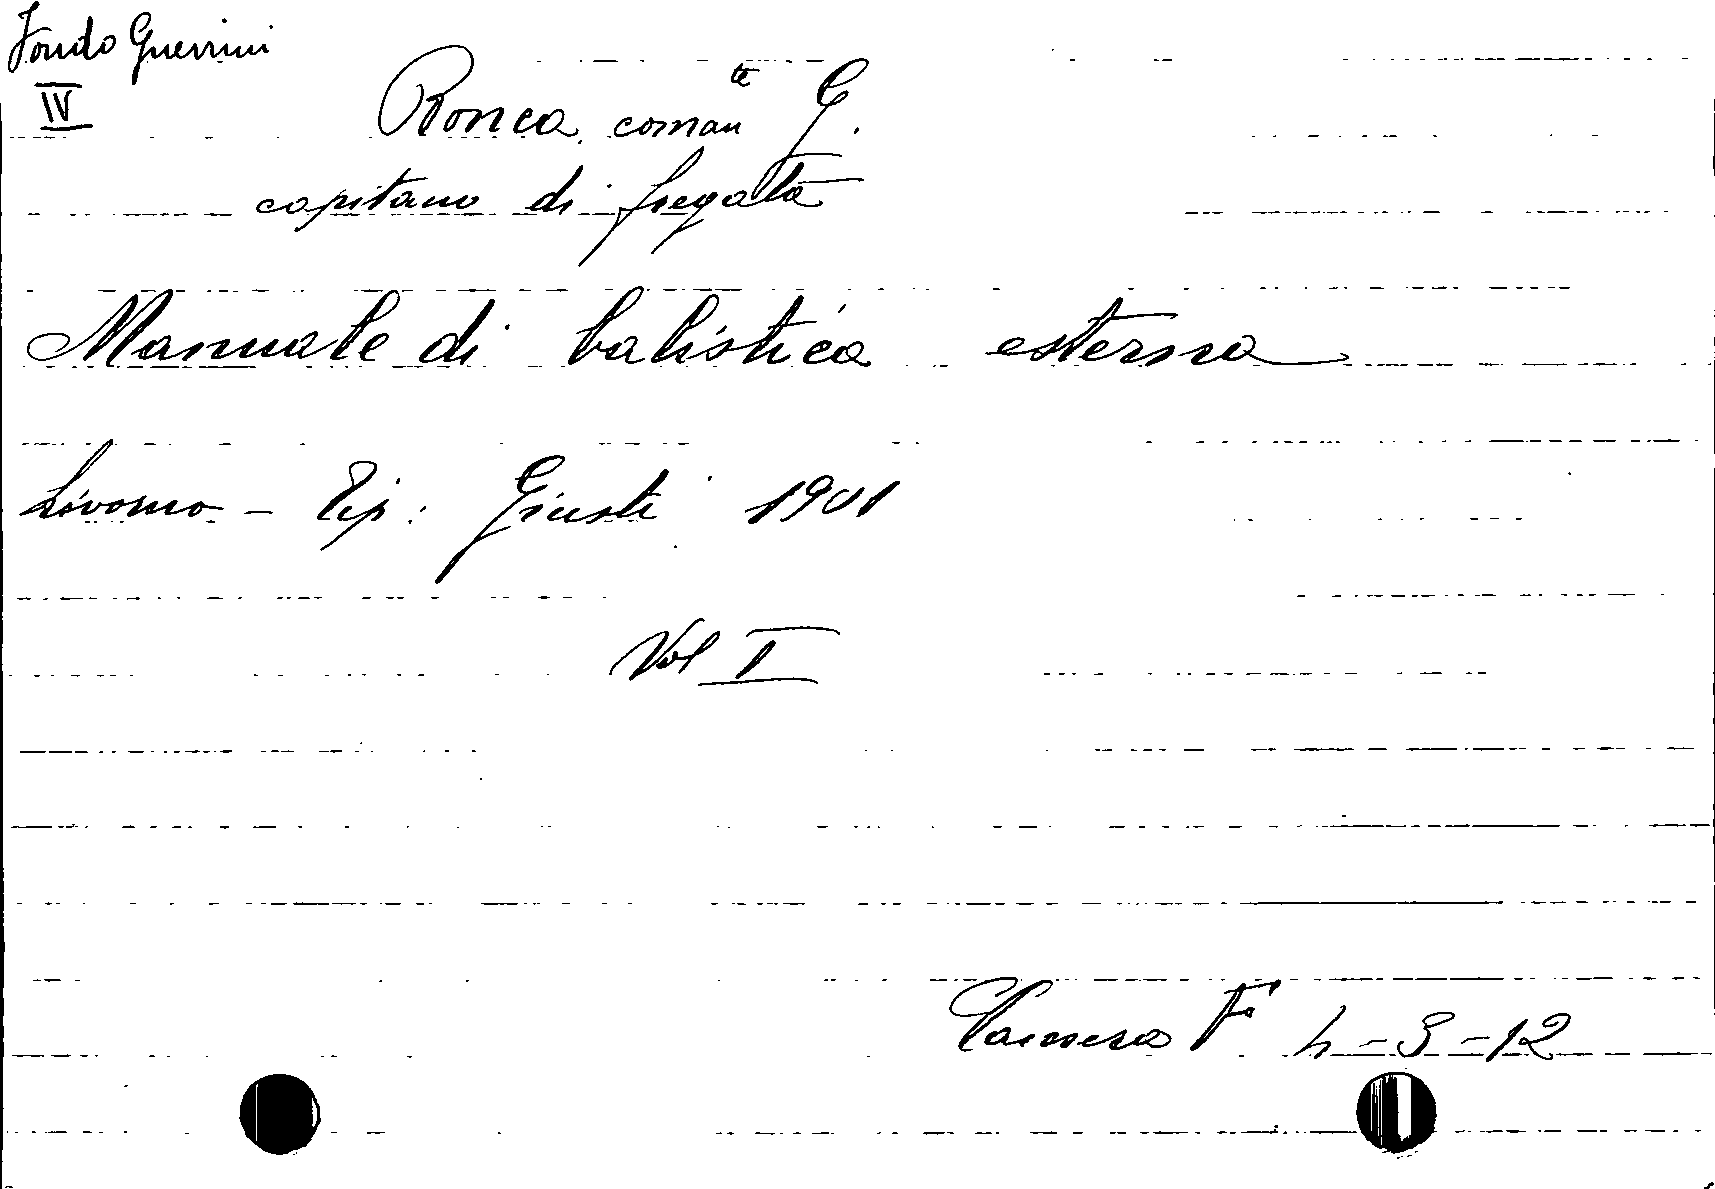 Fondo Guerrini
IV
Ronca, coman te G.
capitano di fregata
Manuale di balistica esterna
Livorno - Tip: Giusti 1901
Vol I
Camera F 4-3-12